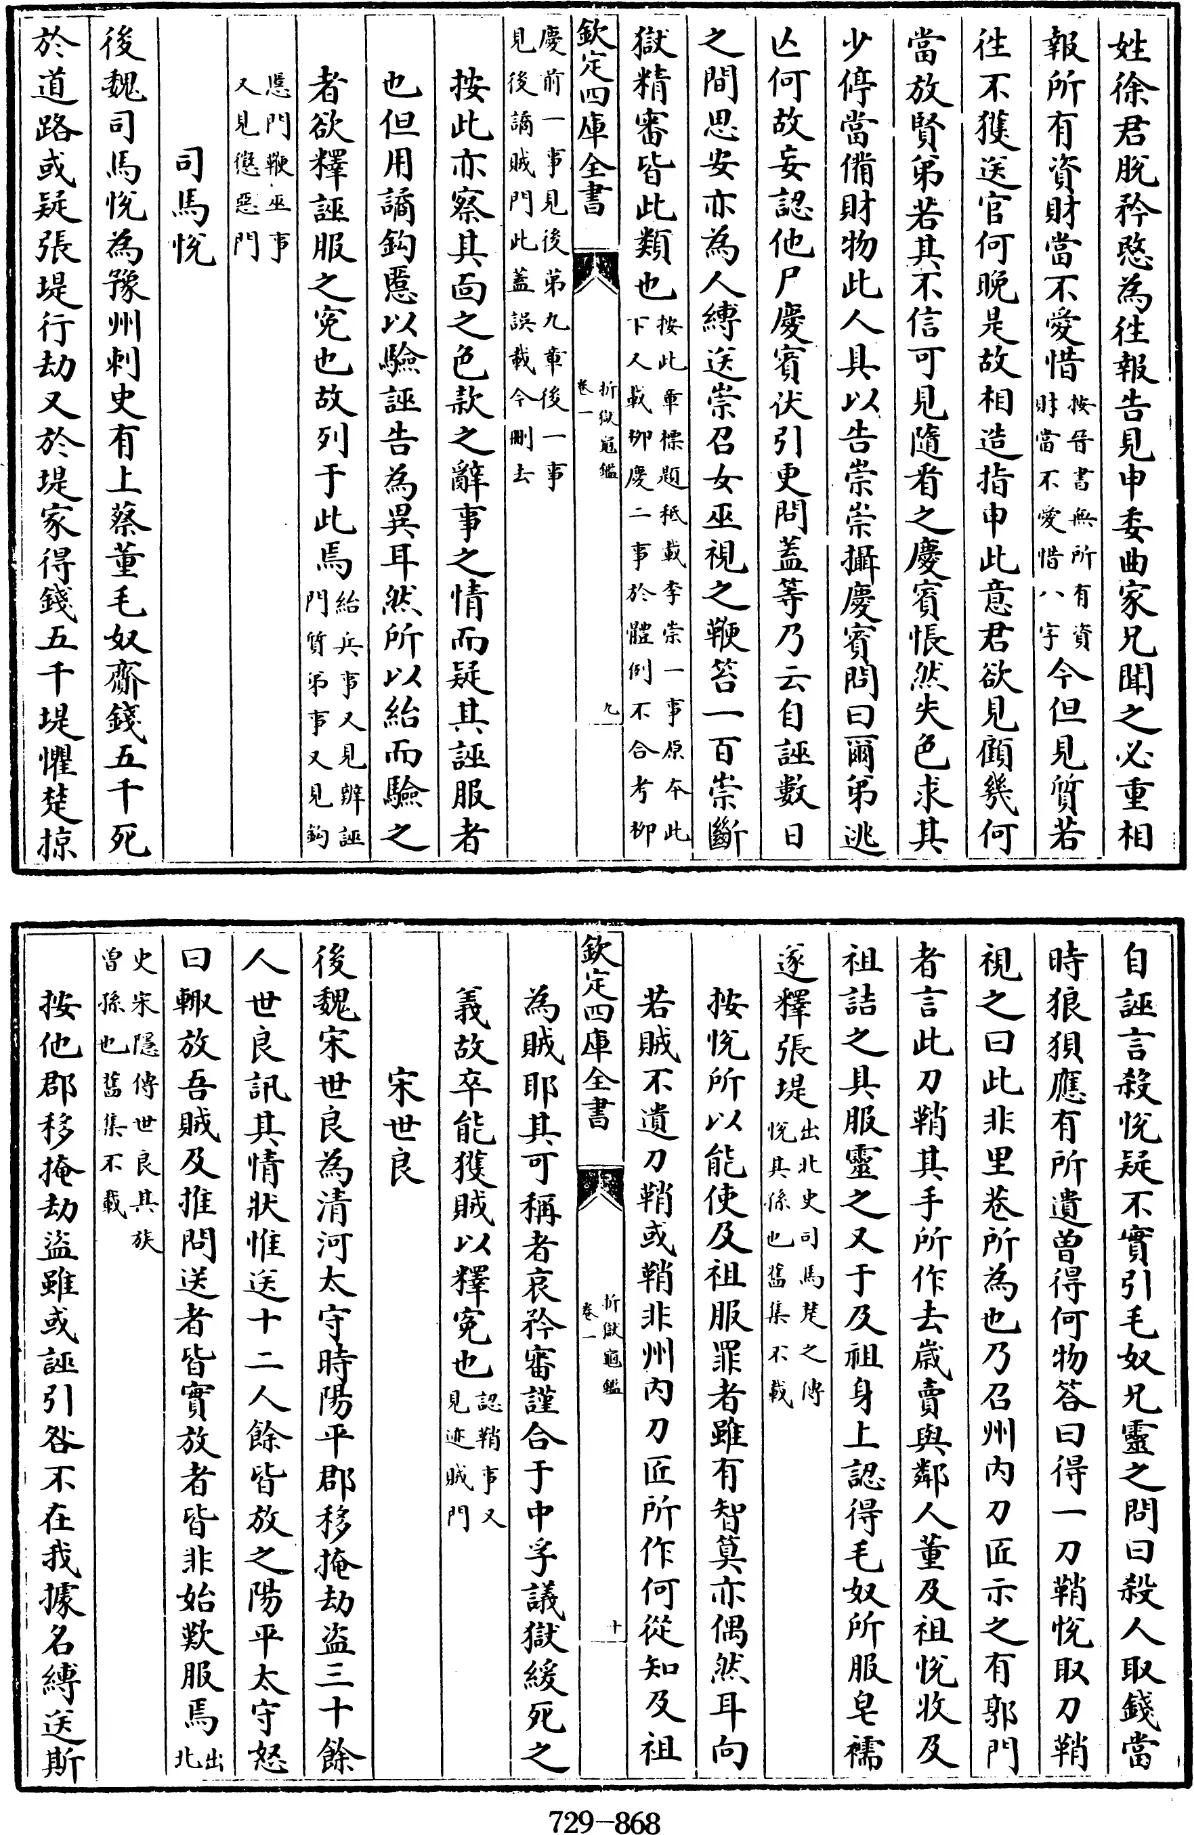 姓徐君脫矜愍為徃報告見申委曲家兄聞之必重相
報所有資財當不愛惜按晉書無所有資財當不愛惜八字今但見質若
徃不獲送官何晚是故相造指申此意君欲見顧幾何
當放賢弟若其不信可見隨看之慶賓悵然失色求其
少停當備財物此人具以告崇崇攝慶賓問曰爾弟逃
亾何故妄認他尸慶賓伏引更問蓋等乃云自誣數日
之間思安亦為人縛送崇召女巫視之鞭笞一百崇斷
獄精審皆此類也按此章標題秪載李崇一事原本此下又載柳慶二事於體例不合考柳
欽定四庫全書
折獄龜鑑
卷一
九
慶前一事見後第九章後一事見後譎賊門此蓋誤載今刪去
按此亦察其面之色款之辭事之情而疑其誣服者
也但用譎鈎慝以驗誣告為異耳然所以紿而驗之
者欲釋誣服之寃也故列于此焉紿兵事又見辨誣門質弟事又見鈎
慝門鞭巫事又見懲惡門
司馬悅
後魏司馬悅為豫州刺史有上蔡董毛奴齎錢五千死
於道路或疑張堤行劫又於堤家得錢五千堤懼楚掠
自誣言殺悅疑不實引毛奴兄靈之問曰殺人取錢當
時狼狽應有所遺曾得何物答曰得一刀鞘悅取刀鞘
視之曰此非里巷所為也乃召州內刀匠示之有郭門
者言此刀鞘其手所作去歲賣與鄰人董及祖悅收及
祖詰之具服靈之又于及祖身上認得毛奴所服皂襦
遂釋張堤出北史司馬楚之傳悅其孫也舊集不載
按悅所以能使及祖服罪者雖有智莫亦偶然耳向
若賊不遺刀鞘或鞘非州內刀匠所作何從知及祖
欽定四庫全書
折獄龜鑑
卷一
十
為賊耶其可稱者哀矜審謹合于中孚議獄緩死之
義故卒能獲賊以釋寃也認鞘事又見迹賊門
宋世良
後魏宋世良為清河太守時陽平郡移掩劫盜三十餘
人世良訊其情狀惟送十二人餘皆放之陽平太守怒
曰輙放吾賊及推問送者皆實放者皆非始歎服焉出北
史宋隱傳世良其族曾孫也舊集不載
按他郡移掩劫盜雖或誣引咎不在我據名縛送斯
729-868